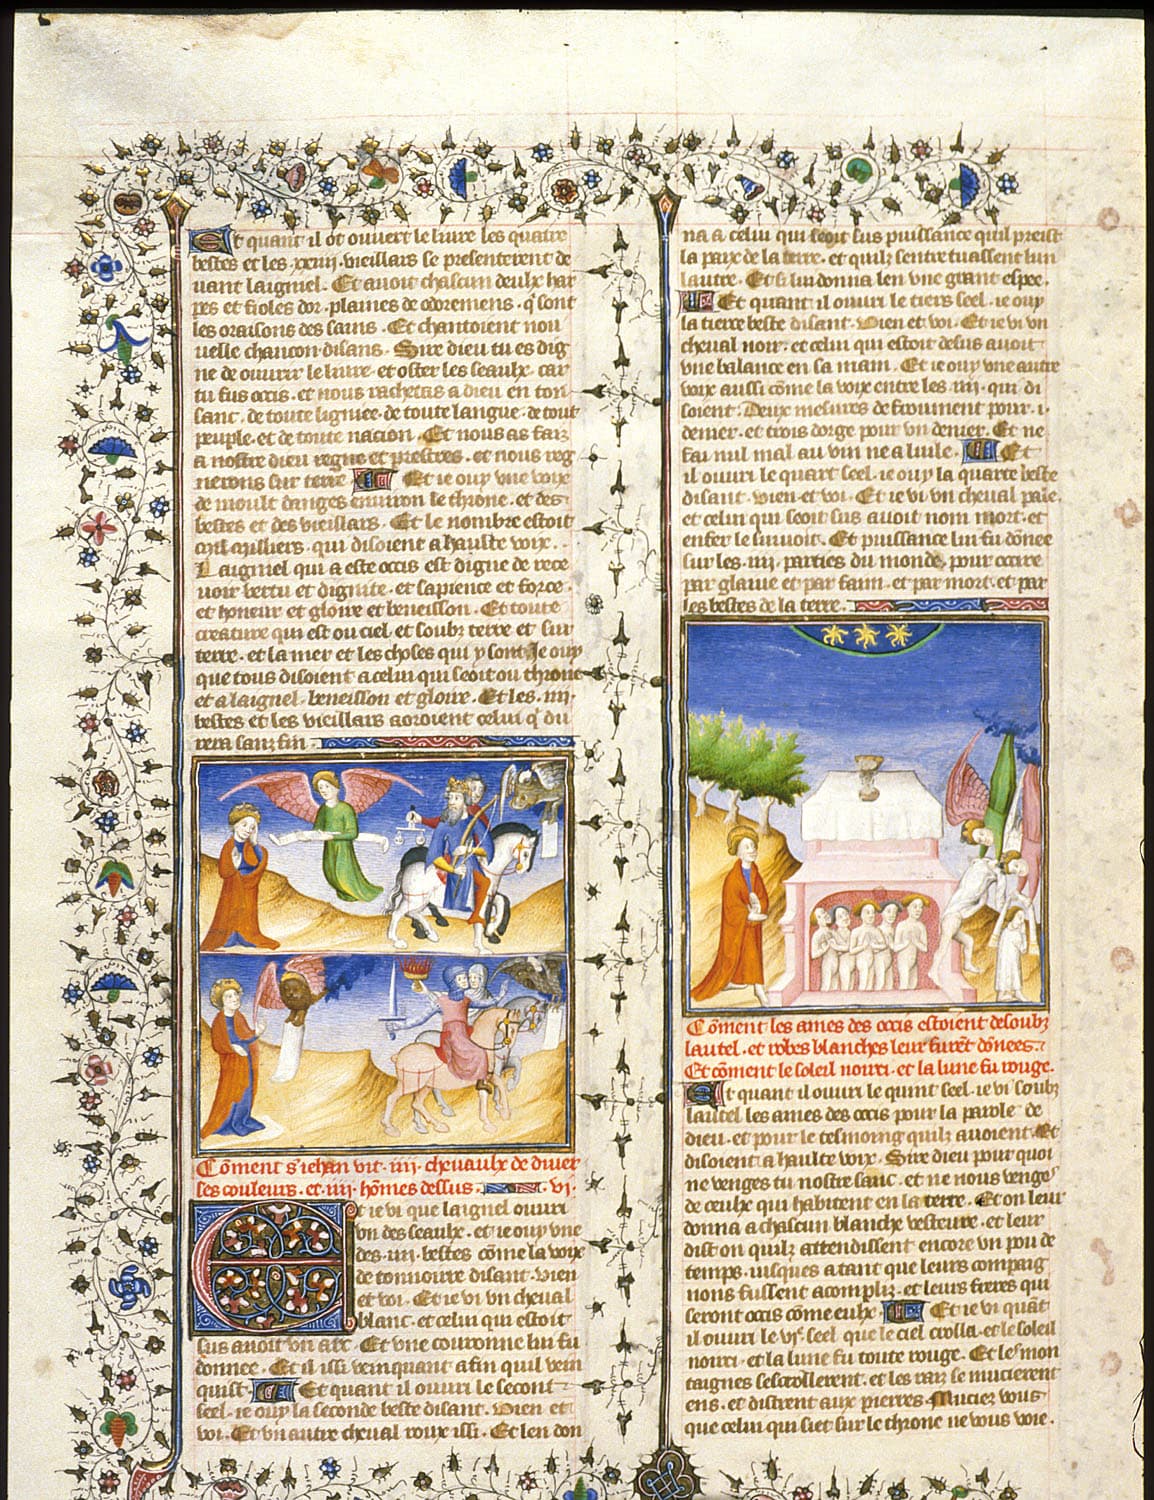 Et quant il ot ouuert le liure les quatre
bestes et les .xxiiij. vieillars se presenterent de
uant laigniel. Et auoit chascun deulx har
pes et fioles dor. plaines de odremens. q̓ sont
les oraisons des sains. Et chantoient nou
uelle chancon disans. Sire dieu tu es dig
ne de ouurir le liure et oster les seaulx. car
tu fus occis. et nous rachetas a dieu en ton
sanc. de toute ligniee. de toute langue. de tout
peuple. et de toute nacion. Et nous as faiz
a nostre dieu regne et prestres. et nous reg
nerons sur terre Et ie ouy vne voix
de moult danges enuiron le throne. et des
bestes et des vieillars. Et le nombre estoit
milliers. qui disoient a haulte voix.
Laigniel qui a este occis est digne de rece
uoir vertu et dignite. et sapience et force.
et honneur et gloire et beneisson. Et toute
creature qui est ou ciel et soubz terre et sur
terre. et la mer et les choses qui y sont Je ouy
que tous disoient a celui qui seoit ou throne
et a laigniel. beneisson et gloire. Et les .iiij.
bestes et les vieillars aoroient celui q̓ du
rera sanz fin
Cōment s'iehan vit .iiij. cheuaulx de diuer
ses couleurs. et .iiij. hōmes dessus. .vi.
Et ie vi que laignel ouuri
vn des seaulx. et ie ouy vne
des .iiij. bestes cōme la voix
de tonnoirre disant. vien
et voi. Et ie vi vn cheual
blanc. et celui qui estoit
sus auoit vn arc. Et vne couronne lui fu
donnee. Et il issi veinquant afin quil vein
quist. Et quant il ouuri le second
seel. ie ouy la seconde beste disant. vien et
voi. Et vn autre cheual roux issi. Et len don
na a celui qui seoit sus puissance quil preist
la paix de la terre. et quilz sentretuassent lun
lautre. Et si lui donna len vne grant espee.
Et quant il ouuri le tiers seel. ie ouy
la tierce beste disant. vien et voi. Et ie vi vn
cheual noir. et celui qui estoit desus auoit
vne balance en sa main. Et ie ouy vne autre
voix aussi cōme la voix entre les .iiij. qui di
soient. Deux mesures de froument pour .i.
denier. et trois dorge pour vn denier. Et ne
fai nul mal au vin ne a luile. Et
il ouuri le quart seel. ie ouy la quarte beste
disant. vien et voi. Et ie vi vn cheual pale.
et celui qui seoit sus auoit nom mort. et
enfer le suiuoit. Et puissance lui fu dōnee
sur les .iiij. parties du monde. pour occire
par glaiue et par faim. et par mort. et par
les bestes de la terre.
Cōment les ames des occis estoient desoubz
lautel. et robes blanches leur furēt dōnees.
Et cōment le soleil nourci. et la lune fu rouge.
Et quant il ouuri le quint seel. ie vi soubz
lautel les ames des occis pour la parole de
dieu. et pour le tesmoing quilz auoient. Et
disoient a haulte voix. Sire dieu pour quoi
ne venges tu nostre sanc. et ne nous venges
de ceulx qui habitent en la terre. Et on leur
donna a chascun blanche vesteure. et leur
dist on quilz attendissent encore vn pou de
temps. iusques a tant que leurs compaig
nons fussent acompliz. et leurs freres qui
seront occis cōme eulx. Et ie vi quāt
il ouuri le vi.ͤ seel que le ciel crolla. et le soleil
nourci. et la lune fu toute rouge. Et les mon
taignes sescrollerent. et les rois se mucierent
ens. et distrent aux pierres. Muciez vous
que celui qui siet sur le throne ne vous voie.